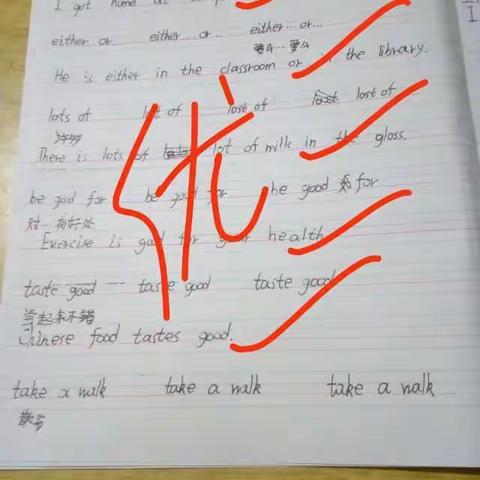 I get home at
either or either...or... either...or...
要么...要么
He is either in the classroom or in the library.
lots of lot of lost of lost of
许多
There is lots of lot of milk in the gloss.
be good for be good for be good for
对...有好处
Exercise is good for your health
taste good --- taste good taste good
尝起来不错
Chinese food tastes good.
take a walk take a walk take a walk
散步
优